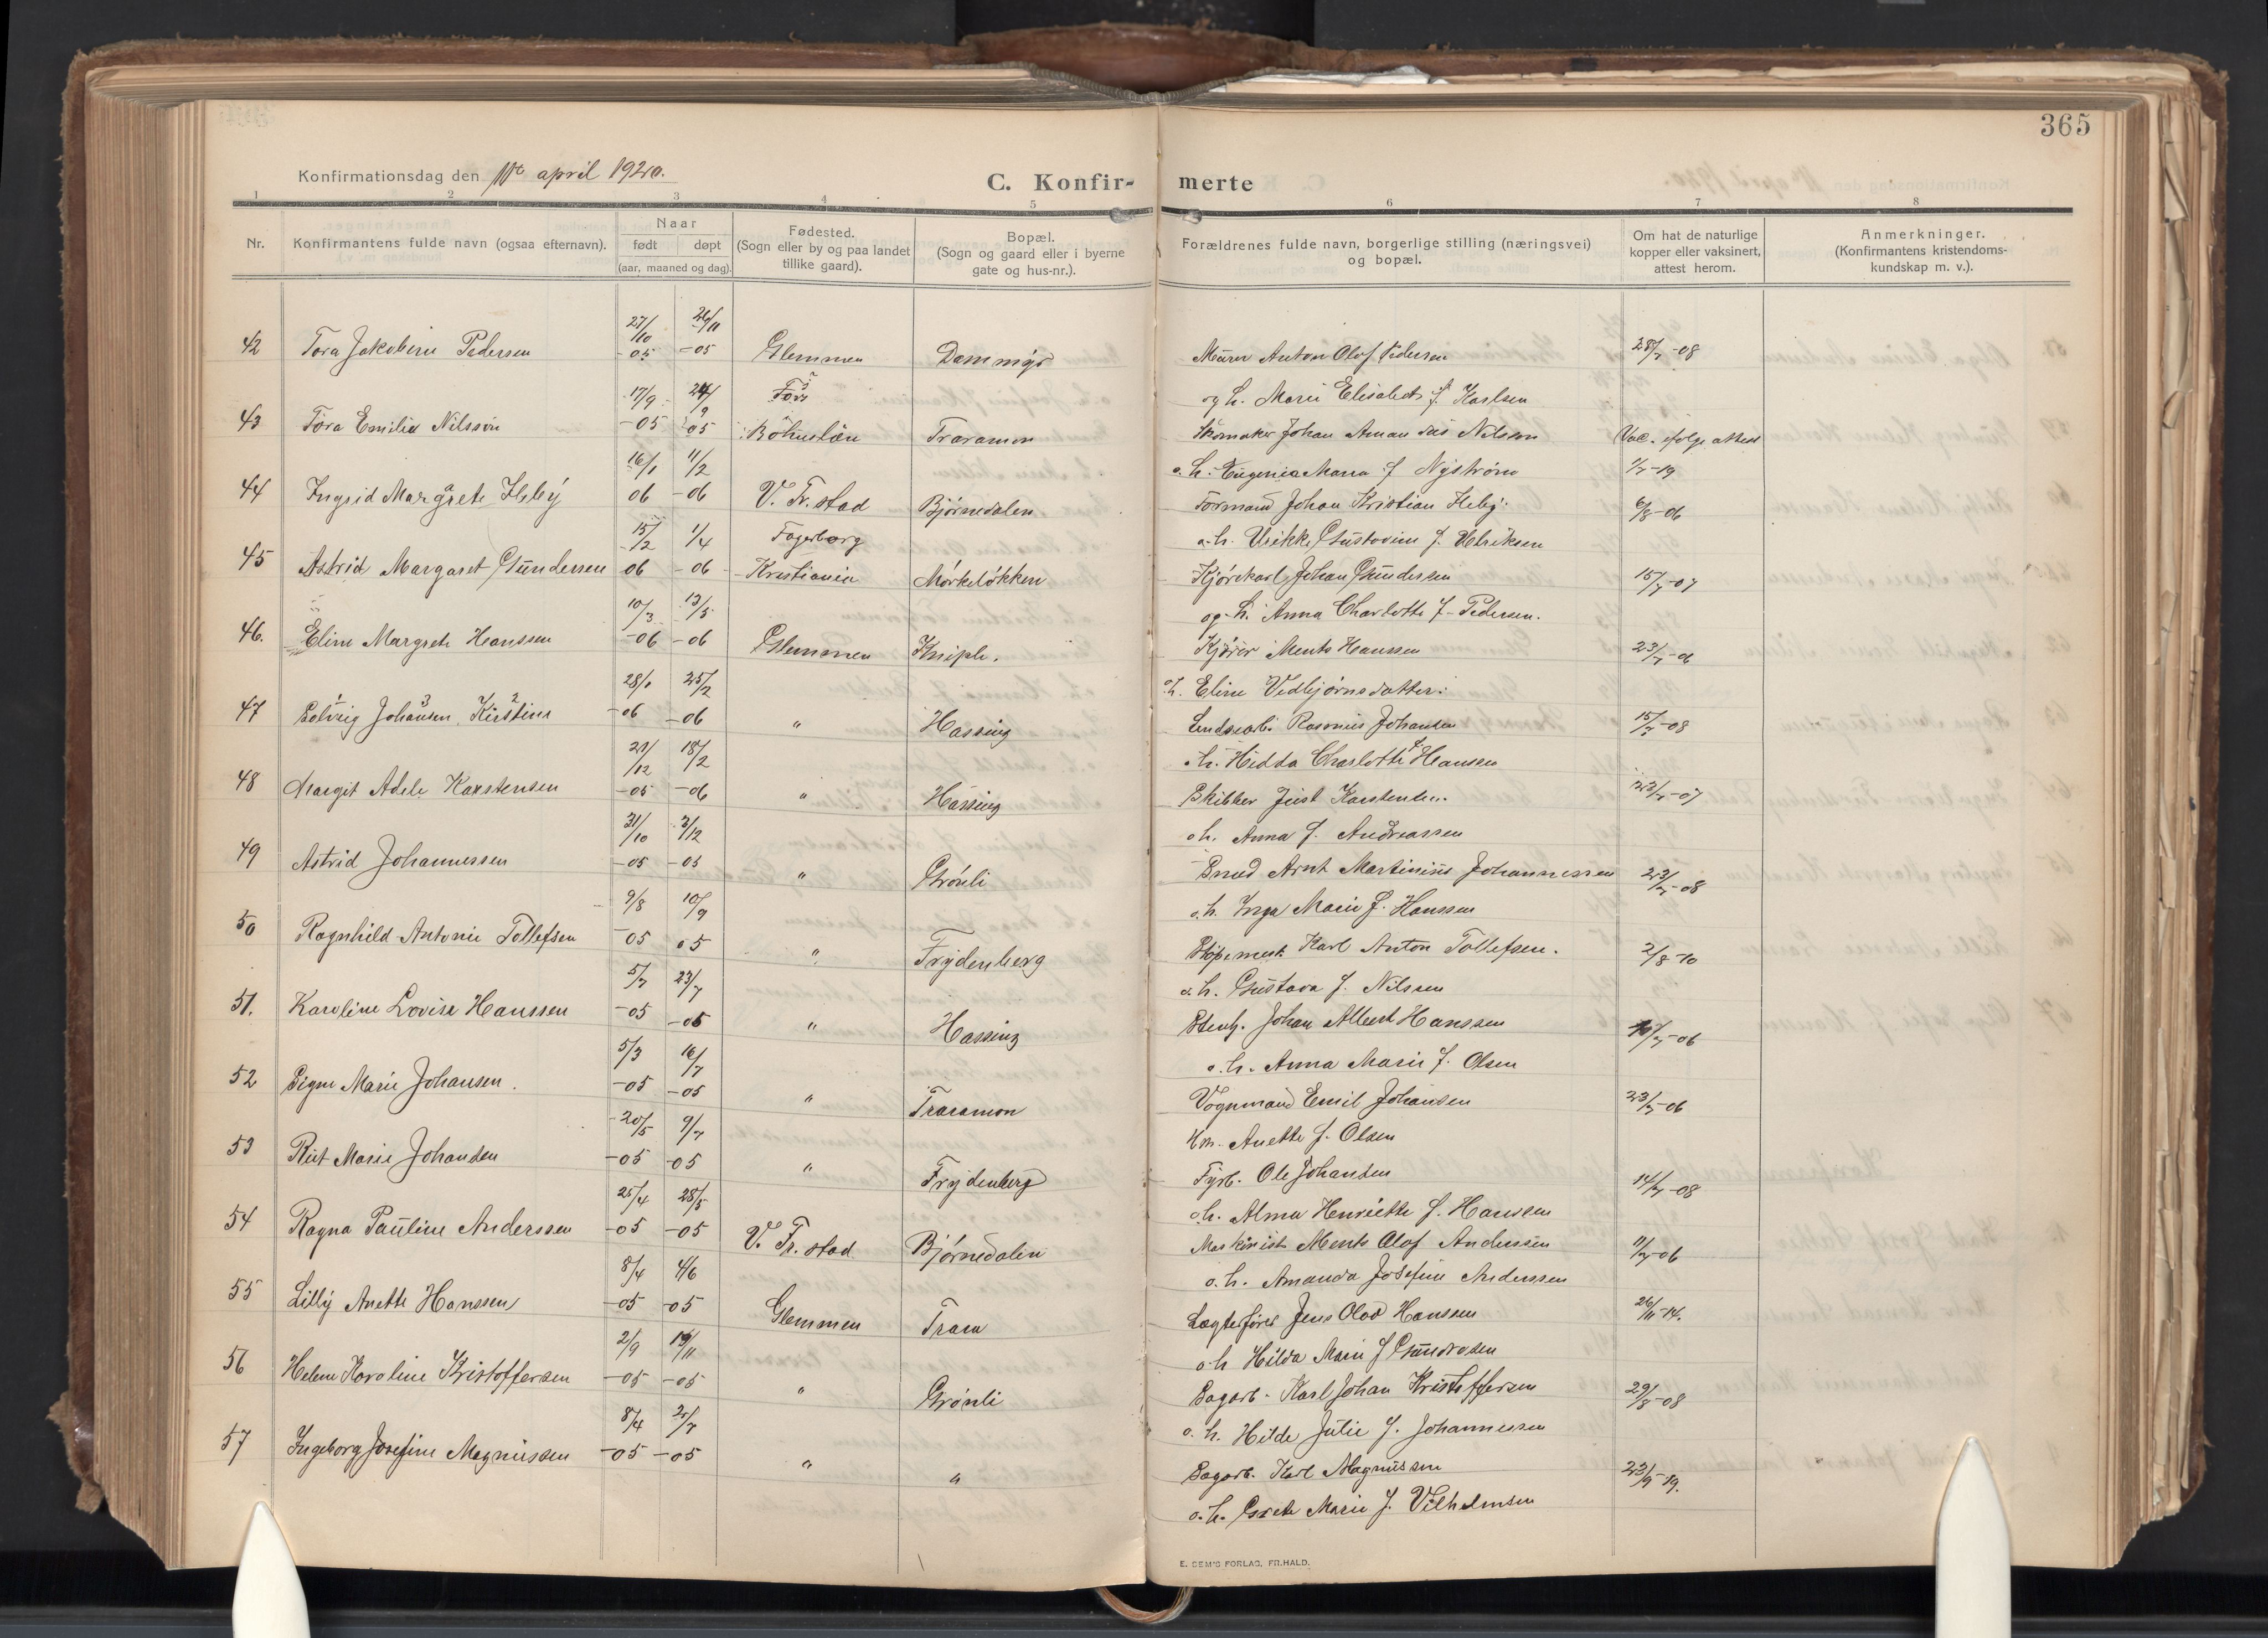 365
Konfirmationsdag den 11te april 1920.
C. Konfir- merte
1 2 3 4 5 6 7 8
Nr.
Konfirmantens fulde navn (ogsaa efternavn).
Naar
født døpt
(aar, maaned og dag).
Fødested.
(Sogn eller by og paa landet
tillike gaard).
Bopæl.
(Sogn og gaard eller i byerne
gate og hus-nr.).
Forældrenes fulde navn, borgerlige stilling (næringsvei)
og bopæl.
Om hat de naturlige
kopper eller vaksinert,
attest herom.
Anmerkninger.
(Konfirmantens kristendoms-
kundskap m. v.).
42 Tora Jakobine Pedersen 27/10 -05 26/11 -05 Glemmen Dammyr Murer Anton Olof Pedersen 28/7-08
og h. Marie Elisabeth f. Karlsen
43 Tora Emilia Nilsson 17/9 -05 24/9 05 Bohuslän Traramon Skomaker Johan Nilsson Vac. ifølge attest
o. h. Eugenia Maria f Nyström 1/7-19
44 Ingrid Margrete Heby 16/1 06 11/2 -06 V. Fr.stad Bjørnedalen Formand Johan Kristian Heby 6/8-06
o. h. Ulrikke Gustovine f. Ulriksen
45 Astrid Margaret Gundersen 15/2 06 1/4 -06 Fagerborg Kristiania Mørkeløkken Kjørekarl Johan Gundersen 15/7-07
og h. Anna Charlotte f. Pedersen.
46. Eline Margrete Hanssen 10/3 -06 13/5 -06 Glemmen Kniple. Kjører Ments Hanssen 23/7-06
o. h. Eline Vedbjørnsdatter.
47 Solveig Johansen 3 Kirstine 2 28/1 -06 25/2 -06 " Hassing Rasmus Johansen 15/7-08
o. h. Hedda Charlotte f Hansen
48 Margit Adele Karstensen 21/12 -05 18/2 -06 " Hassing Skibber Just Karstensen. 23/7-07
o h. Anna f. Andreassen
49 Astrid Johannessen 31/10 -05 3/12 -05 " Grønli Smed Arnt Martinius Johannessen 23/7-08
o. h. Inga Marie f. Hanssen
50 Ragnhild Antonie Tollefsen 9/8 -05 10/9 05 " Frydenberg Støpemest. Karl Anton Tollefsen. 2/8-10
o. h. Gustava f. Nilsen
51. Karoline Lovise Hanssen 5/7 -05 23/7 -05 " Hassing Stenh. Johan Albert Hanssen
o. h. Anna Marie f. Olsen
52 Signe Marie Johansen. 5/3 -05 16/7 -05 " Traramon Vognmand Emil Johansen 23/7-06
Anette f. Olsen
53 Rut Marie Johansen 20/5 -05 9/7 -05 " Frydenberg Fyrb. Ole Johansen 14/7-08
o h. Alma Henriette f. Hanssen
54 Ragna Pauline Anderssen 25/4 -05 28/5 -05 V. Fr. stad Bjørnedalen Maskinist Ments Olof Anderssen 11/7-06
o. h. Amanda Josefine Anderssen
55 Lilly Anette Hanssen 8/4 -05 4/6 -05 Glemmen Trara Lægterfører Jens Olod Hanssen 26/11-14.
o h Hilda Marie f Gundersen
56 Helene Karoline Kristoffersen 2/9 -05 19/11 -05 " Grønli Sagarb. Karl Johan Kristoffersen 29/8-08
o. h. Hilde Julie f. Johannesen
57 Ingeborg Josefine Magnussen 8/4 -05 2/7 -05 " " Sagarb. Karl Magnussen 23/9-19.
o. h. Grete Marie f. Vilhelmsen
E. SEM'S FORLAG, FR.HALD.